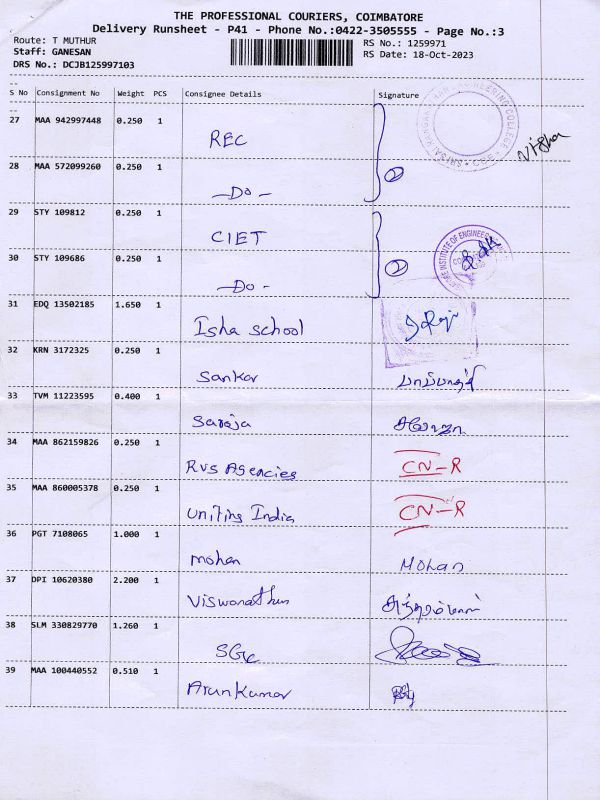 THE PROFESSIONAL COURIERS, COIMBATORE
Delivery Runsheet - P41 - Phone No.:0422-3505555 - Page No.:3
Route: T MUTHUR
RS No.: 1259971
Staff: GANESAN
RS Date: 18-Oct-2023
DRS No.: DCJB125997103
S No Consignment No Weight PCS Consignee Details Signature
27 MAA 942997448 0.250 1
REC
28 MAA 572099260 0.250 1
2
-Do-
29 STY 109812 0.250 1
CIET
30 STY 109686 0.250 1
2
-Do-
31 EDQ 13502185 1.650 1
Isha school
32 KRN 3172325 0.250 1
Sankar
33 TVM 11223595 0.400 1
Saroja சரோஜா
34 MAA 862159826 0.250 1
RVS Agencies CN-R
35 MAA 860005378 0.250 1
Uniting India CN-R
36 PGT 7108065 1.000 1
mohan Mohan
37 DPI 10620380 2.200 1
Viswanathan
38 SLM 330829770 1.260 1
39 MAA 100440552 0.510 1
Arunkumar